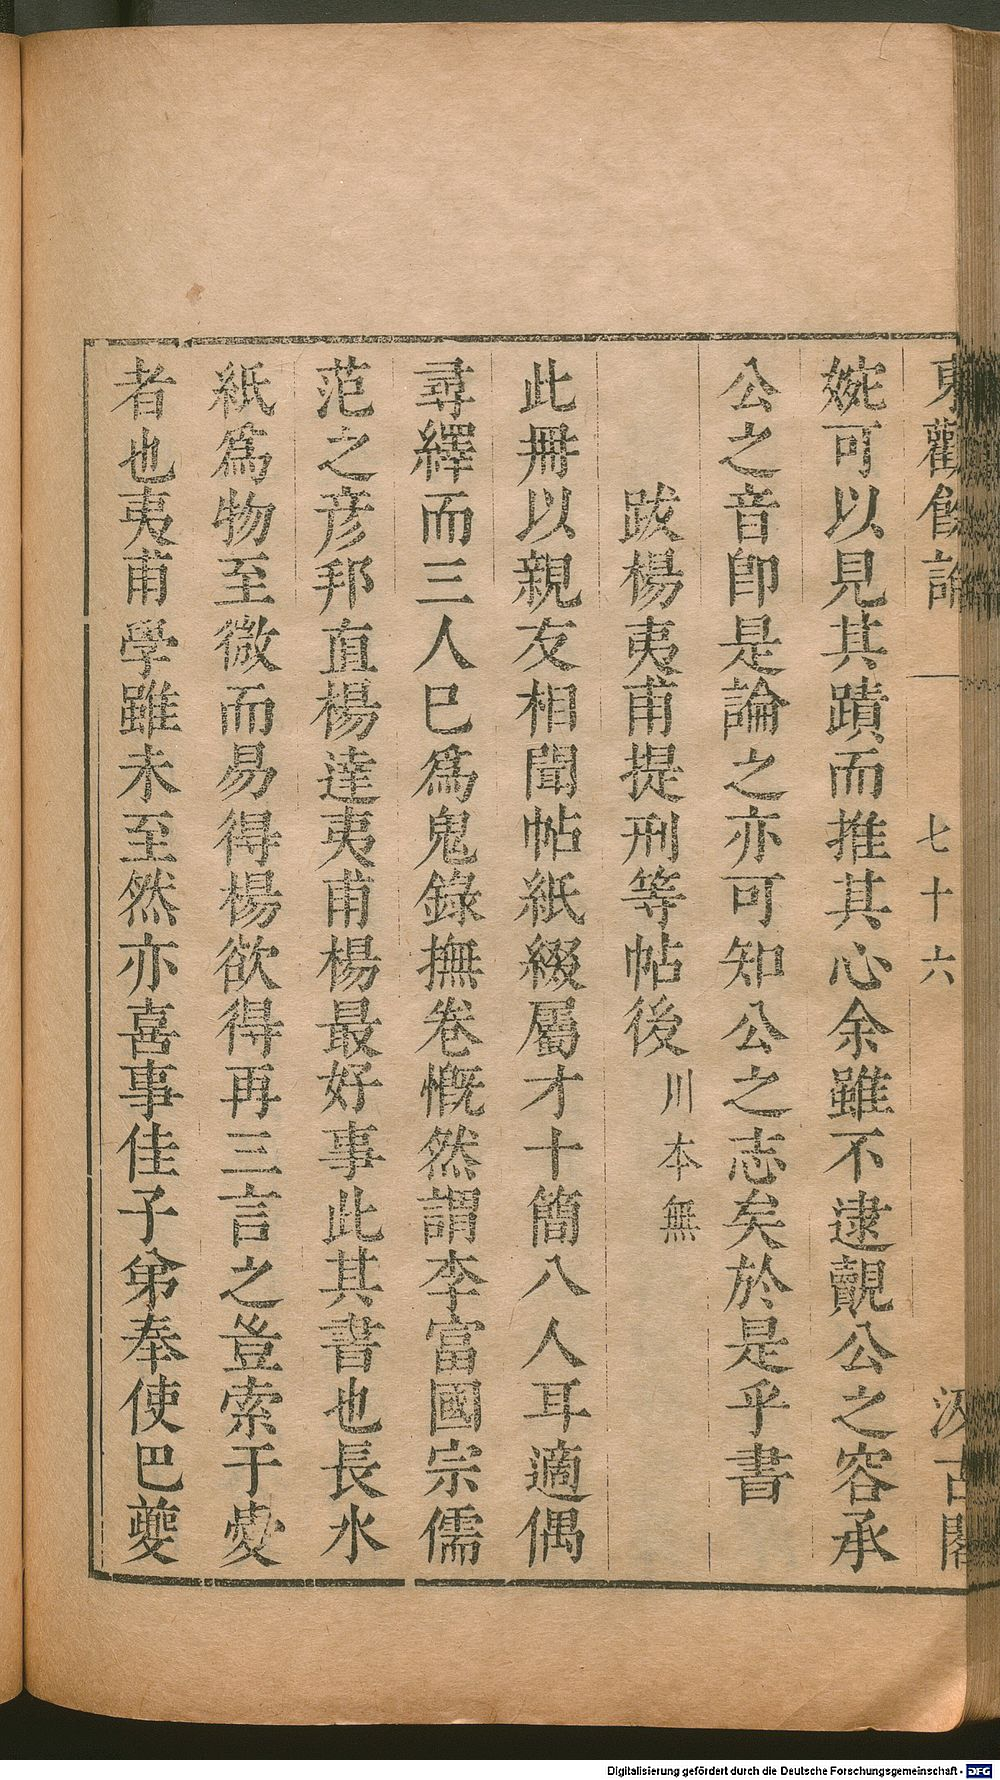 東觀餘論　七十六　汲古閣
婉可以見其蹟而推其心余雖不逮覿公之容承
公之音卽是論之亦可知公之志矣於是乎書
跋楊夷甫提刑等帖後川本無
此冊以親友相聞帖紙綴屬才十簡八人耳適偶
尋繹而三人巳爲鬼錄撫卷慨然謂李富國宗儒
范之彦邦直楊達夷甫楊最好事此其書也長水
紙爲物至微而易得楊欲得再三言之豈索于夔
者也夷甫學雖未至然亦喜事佳子弟奉使巴夔
Digitalisierung gefördert durch die Deutsche Forschungsgemeinschaft - DFG